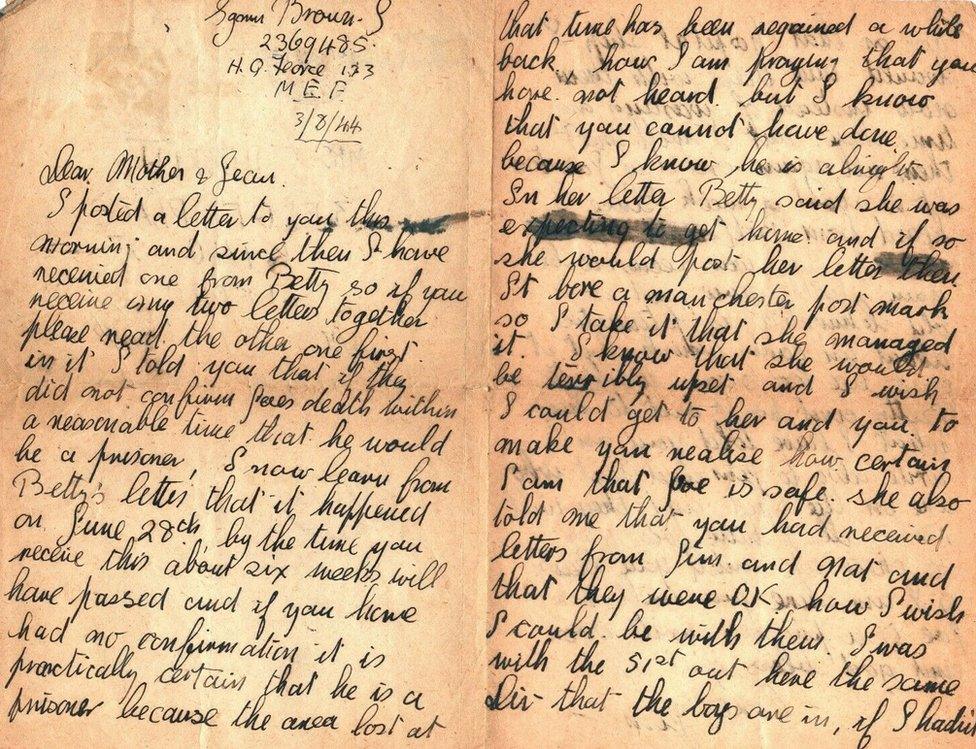 Brown. S
2369485.
H.Q. Force 133
M.E.F.
3/8/44
Dear Mother & Jean.
I posted a letter to you this
morning and since then I have
received one from Betty so if you
receive my two letters together
please read the other one first.
in it I told you that if they
did not confirm Joes death within
a reasonable time that he would
be a prisoner, I now learn from
Betty's letter that it happened
on June 28th, by the time you
receive this about six weeks will
have passed and if you have
had no confirmation it is
practically certain that he is a
prisoner because the area lost at
that time has been regained a while
back how I am praying that you
have not heard. but I know
that you cannot have done.
because I know he is alright.
In her letter Betty said she was
expecting to get home and if so
she would post her letter then.
It bore a manchester post mark
so I take it that she managed
it. I know that she would
be terribly upset and I wish
I could get to her and you to
make you realise how certain
I am that Joe is safe. she also
told me that you had received
letters from Jim and Nat and
that they were OK how I wish
I could be with them. I was
with the 51st out here the same
Div that the boys are in, if I hadn't